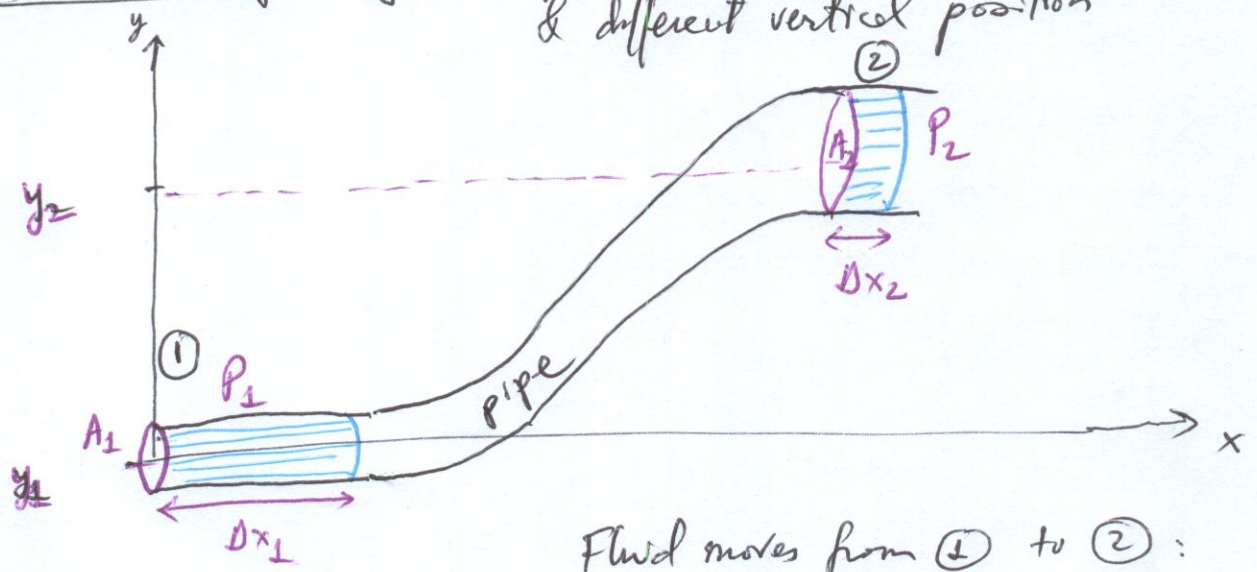 & different vertical position
y
②
A₂
P₂
y₂
Δx₂
①
P₁
pipe
A₁
x
y₁
Δx₁
Fluid moves from ① to ② :